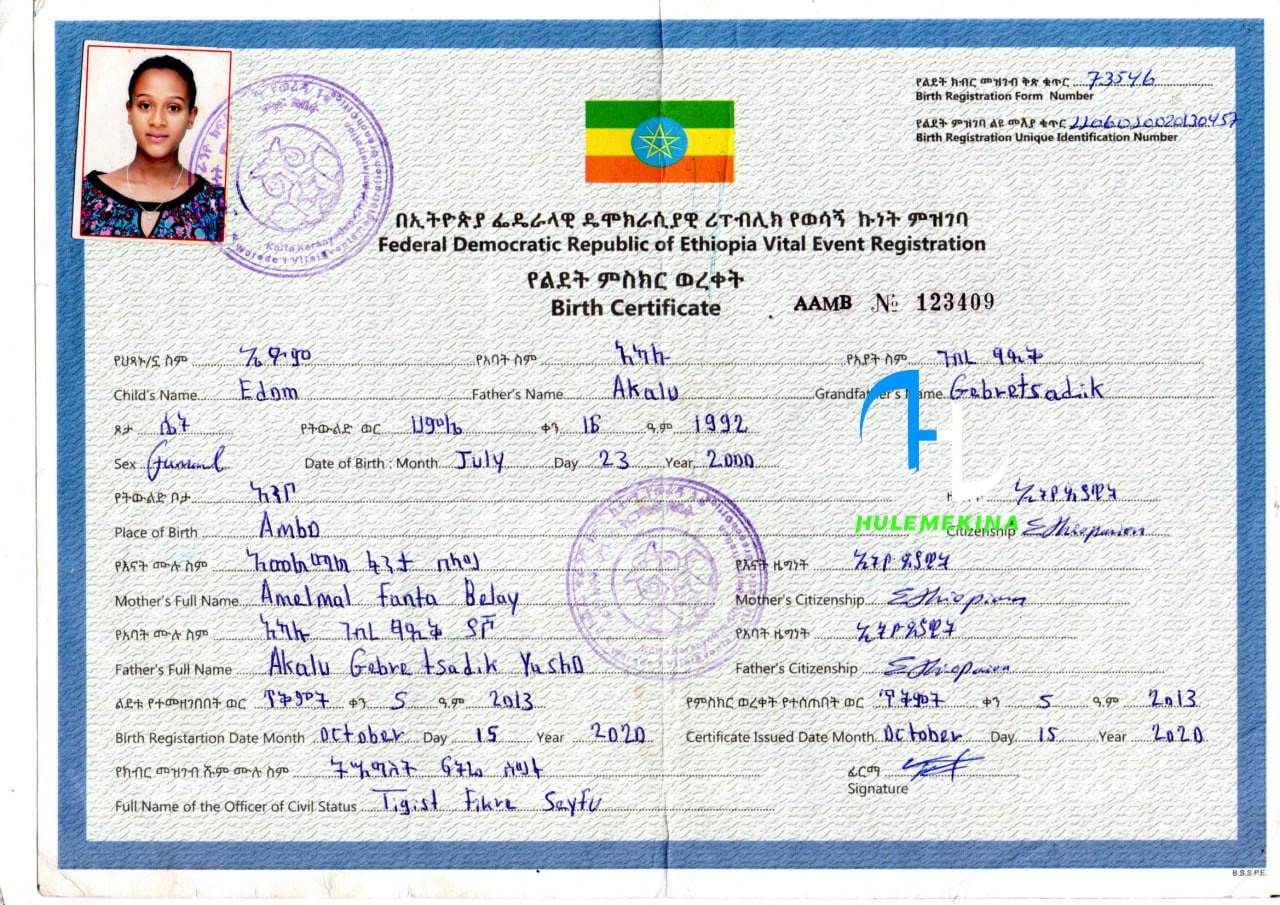 የልደት ክብር መዝገብ ቅጽ ቁጥር 73546
Birth Registration Form Number
የልደት ምዝገባ ልዩ መለያ ቁጥር
Birth Registration Unique Identification Number
በኢትዮጵያ ፌዴራላዊ ዴሞክራሲያዊ ሪፐብሊክ የወሳኝ ኩነት ምዝገባ
Federal Democratic Republic of Ethiopia Vital Event Registration
የልደት ምስክር ወረቀት
Birth Certificate
AAMB № 123409
የህጻኑ/ኗ ስም ኤዶም የአባት ስም አካሉ የአያት ስም ገብረ ፃዲቅ
Child's Name Edom Father's Name Akalu Grandfather's Name Gebretsadik
ጾታ ሴት የትውልድ ወር ሀምሌ ቀን 16 ዓ.ም 1992
Sex Date of Birth : Month July Day 23 Year 2000
የትውልድ ቦታ አምቦ ኢትዮጵያዊት
Place of Birth Ambo Citizenship Ethiopian
HULEMEKINA
የእናት ሙሉ ስም አመልማል ፋንታ በላይ የእናት ዜግነት ኢትዮጵያዊት
Mother's Full Name Amelmal Fanta Belay Mother's Citizenship Ethiopian
የአባት ሙሉ ስም አካሉ ገብረ ፃዲቅ ያሾ የአባት ዜግነት ኢትዮጵያዊ
Father's Full Name Akalu Gebretsadik Yusho Father's Citizenship Ethiopian
ልደቱ የተመዘገበበት ወር ጥቅምት ቀን 5 ዓ.ም 2013 የምስክር ወረቀት የተሰጠበት ወር ጥቅምት ቀን 5 ዓ.ም 2013
Birth Registartion Date Month October Day 15 Year 2020 Certificate Issued Date Month October Day 15 Year 2020
የክብር መዝገብ ሹም ሙሉ ስም ትዕግስት ፍቅሬ ሰይፉ ፊርማ
Full Name of the Officer of Civil Status Tigist Fikre Seyfu Signature
B.S.S.P.E.